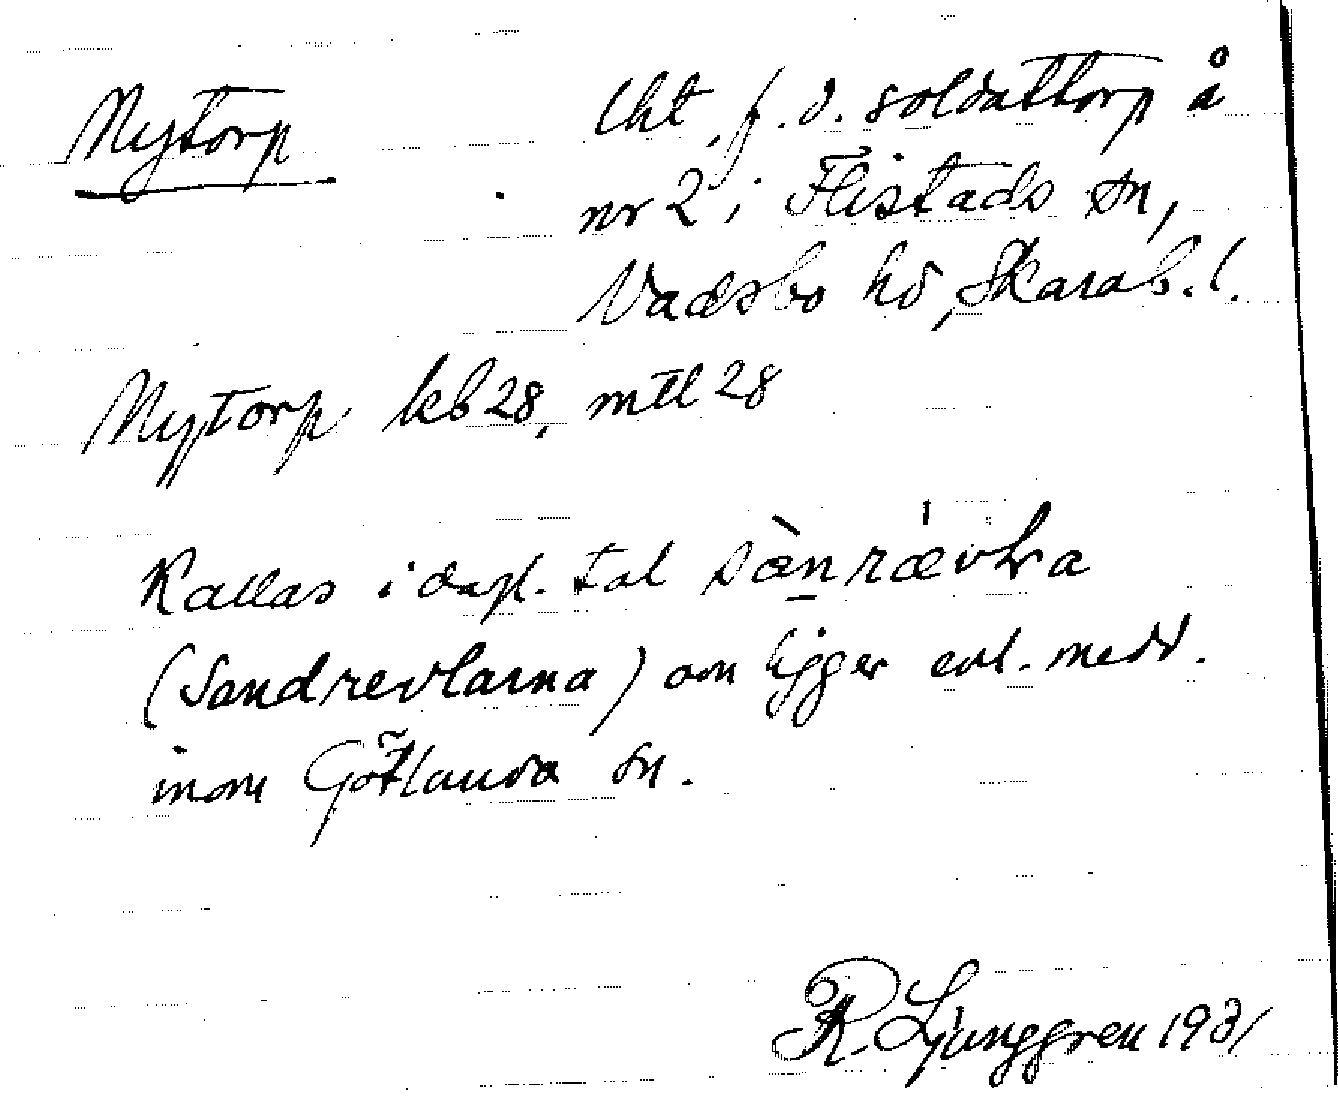 Nytorp lht, f.d. soldattorp å
nr 2 i Flistads sn,
Vadsbo hd, Skarab.l.
Nytorp kb 28, mtl 28
Kallas i dagl. tal sæ̀nræ̍vɫa
(Sandrevlarna) om ligger enl. medd.
inom Götlunda sn.
R. Ljunggren 1931